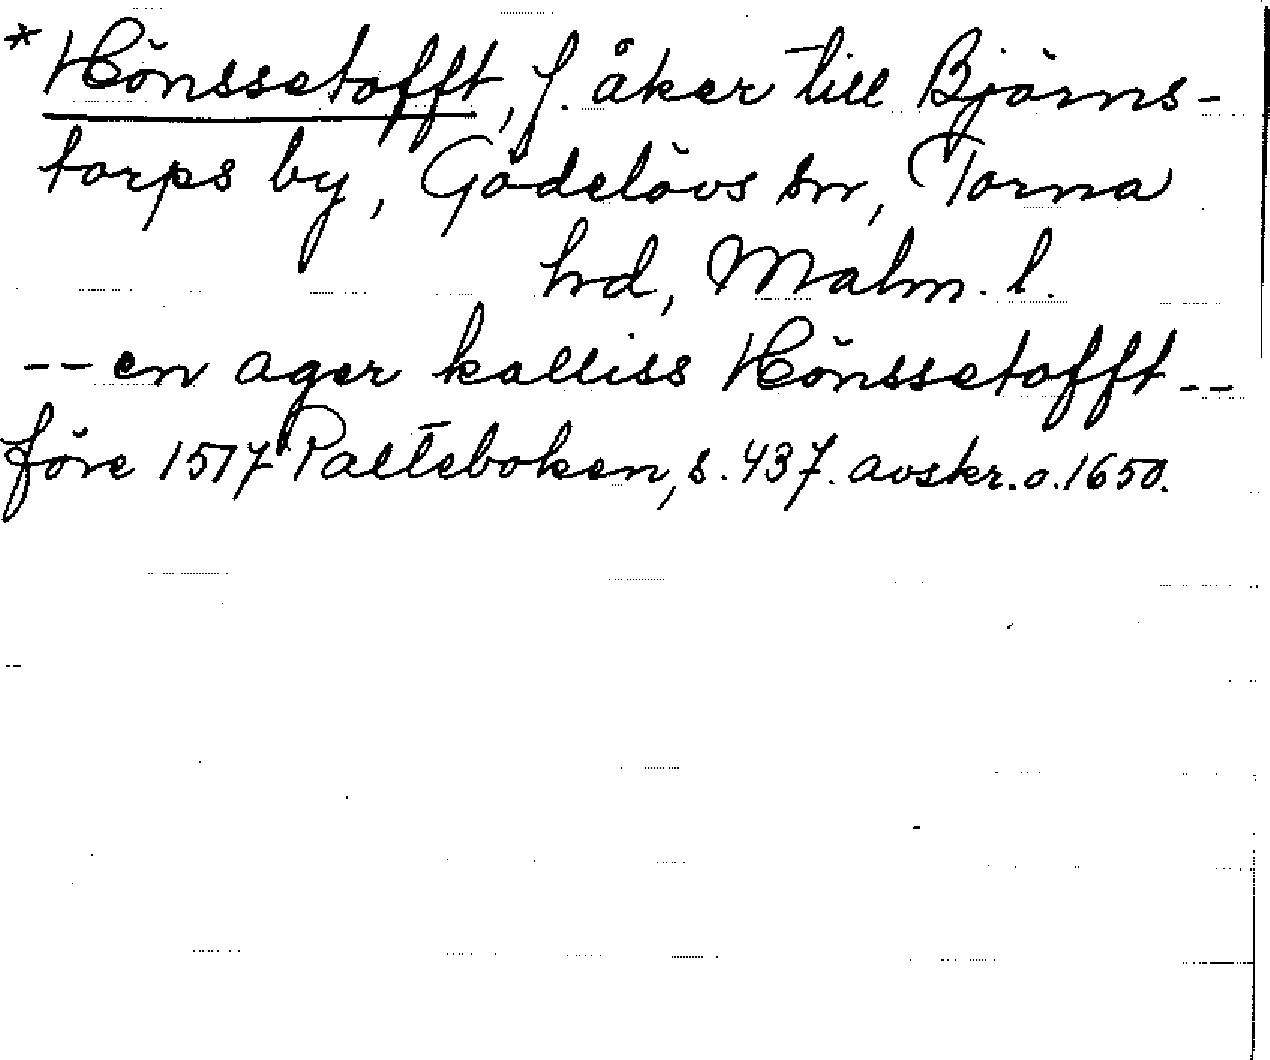 *Hönssetofft, f. åker till Björns-
torps by, Gödelövs sn, Torna
hrd, Malm. l.
-- en ager kalliss Hönssetofft --
före 1517 Palteboken, s. 437. avskr. o. 1650.